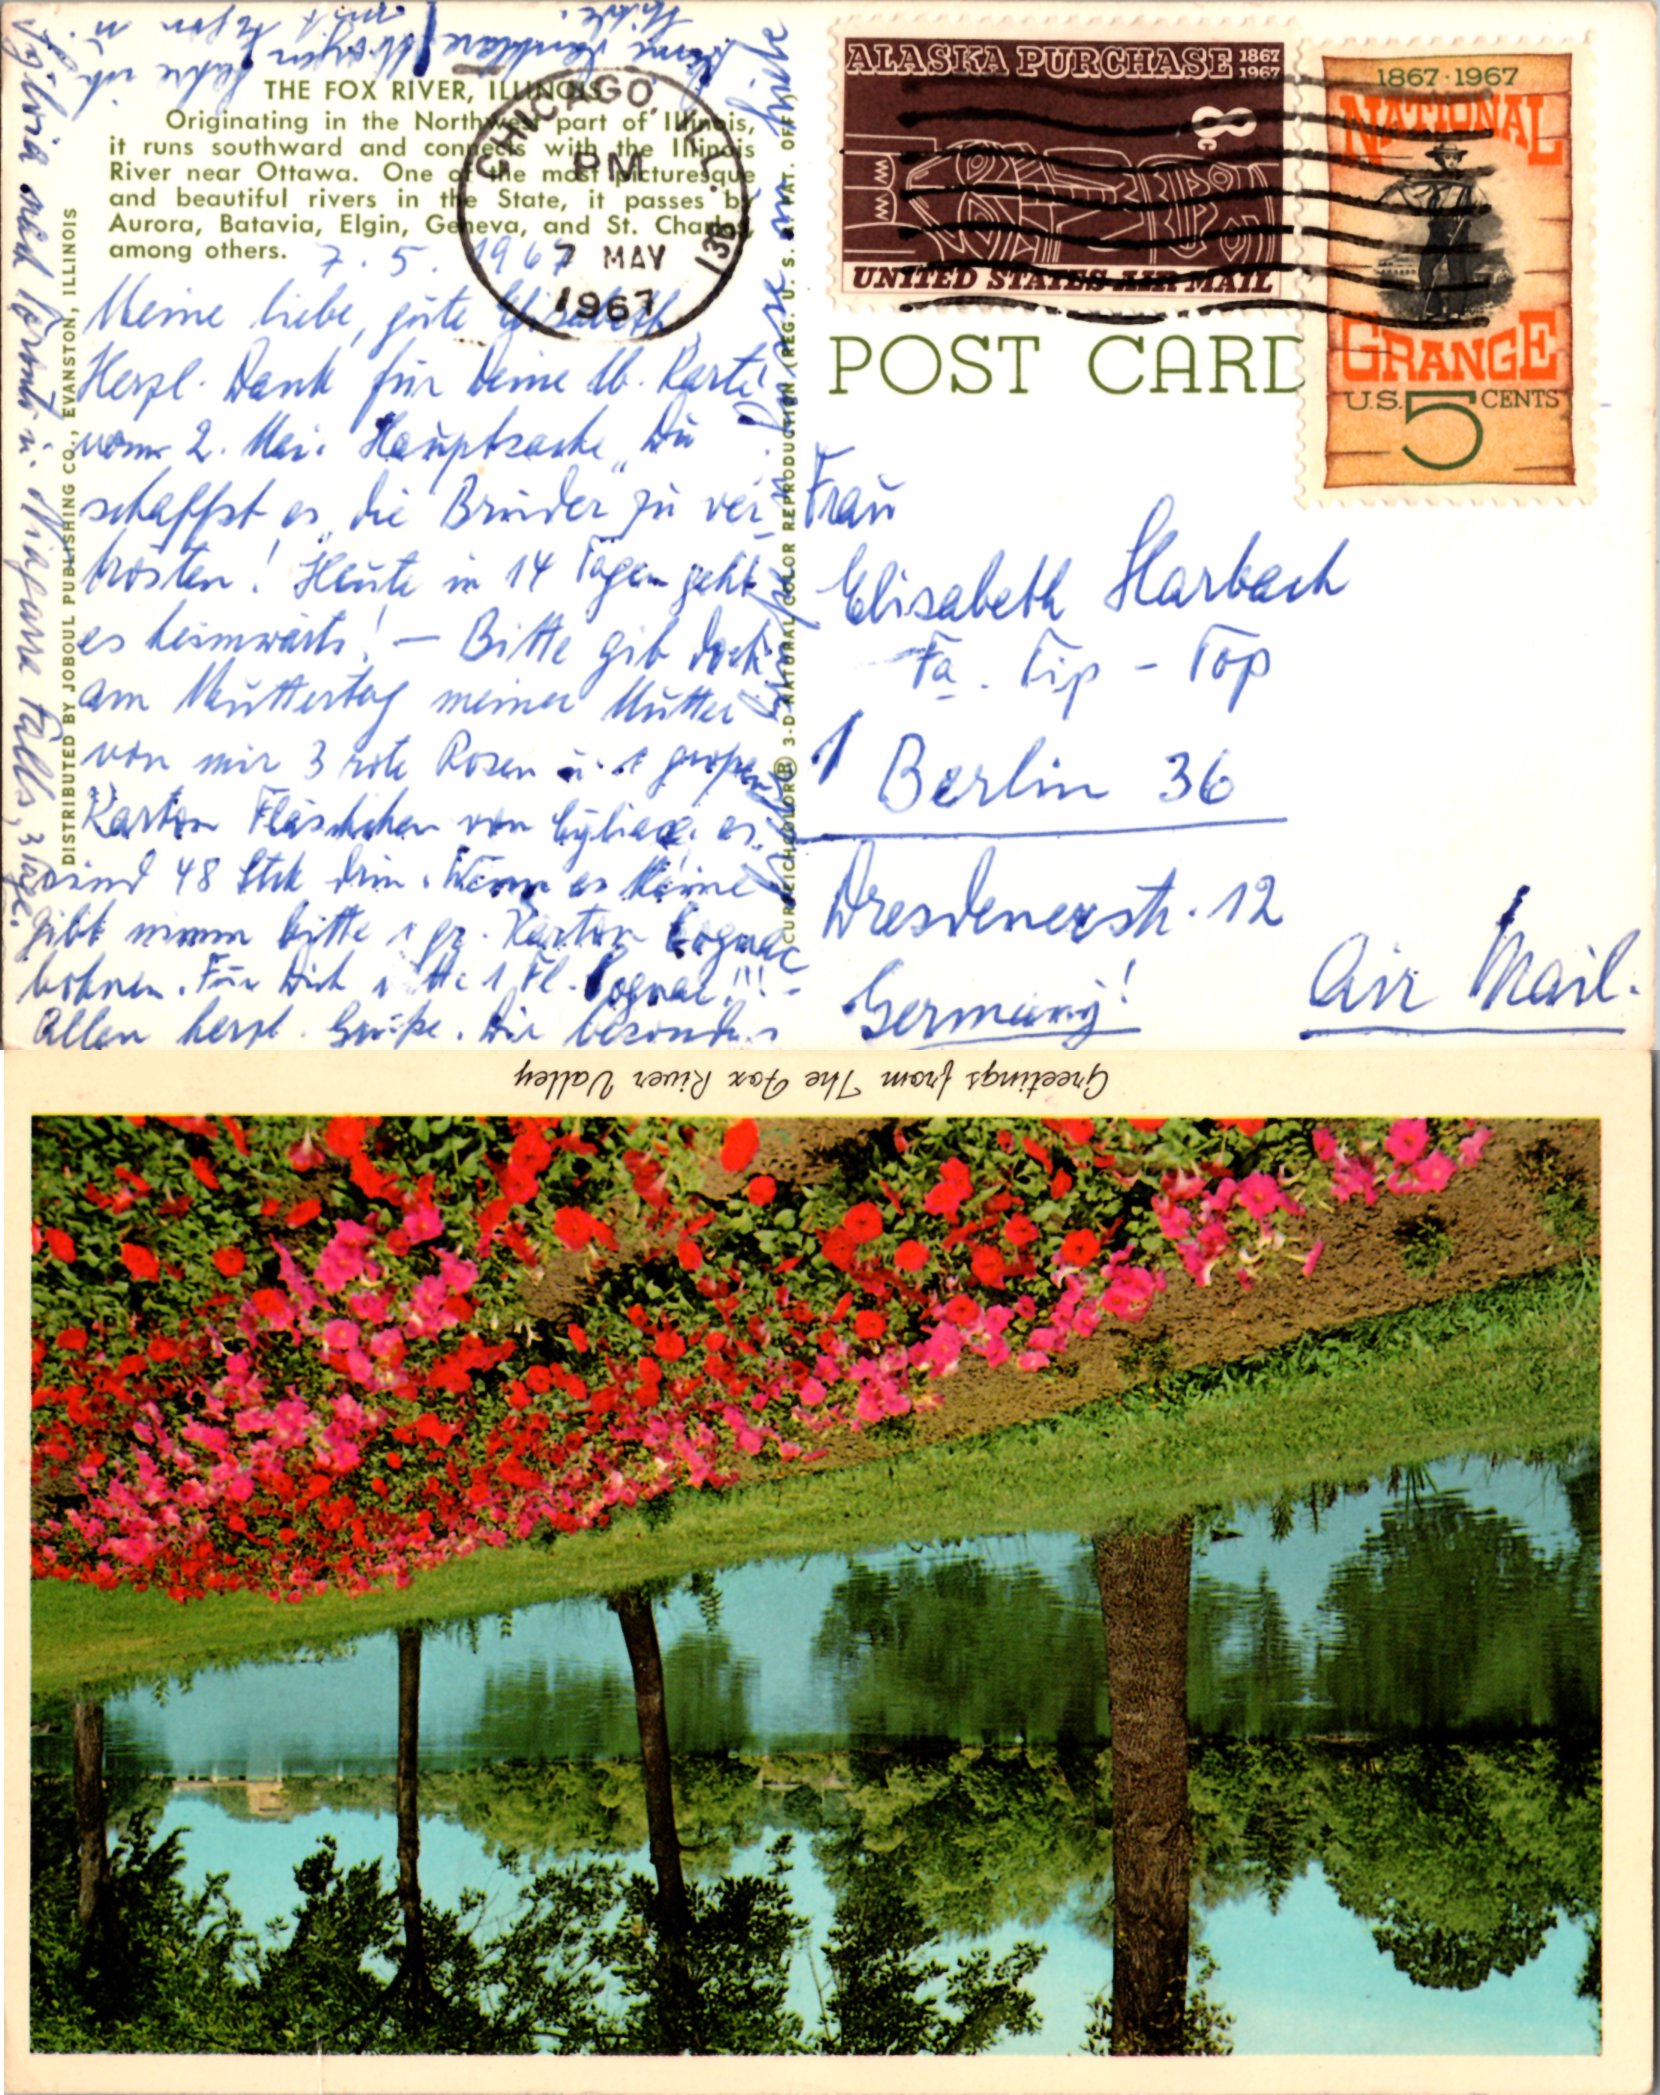 THE FOX RIVER, ILLINOIS
Originating in the Northwest part of Illinois,
it runs southward and connects with the Illinois
River near Ottawa. One of the most picturesque
and beautiful rivers in the State, it passes by
Aurora, Batavia, Elgin, Geneva, and St. Charles,
among others.
7. 5. 1967
Meine liebe, gute Elisabeth,
Herzl. Dank für Deine lb. Karte
vom 2. Mai. Hauptsache „Du
schaffst es" die Brüder zu ver-
trösten! Heute in 14 Tagen geht
es heimwärts! — Bitte gib doch
am Muttertag meiner Mutter
von mir 3 rote Rosen u. 1 großen
Karton Fläschchen von es
sind 48 Stck drin. Wenn es keine
gibt nimm bitte 1 gr. Karton Cognac
bohnen. Für Dich bitte 1 Fl. Cognac!!! -
Allen herzl. Grüße. Dir besonders
DISTRIBUTED BY JOBOUL PUBLISHING CO., EVANSTON, ILLINOIS
CURTEICHCOLOR® 3-D NATURAL COLOR REPRODUCTION (REG. U. S. PAT. OFF.)
CHICAGO, ILL.
PM
7 MAY
1967
ALASKA PURCHASE 1867 1967
8c
UNITED STATES AIR MAIL
1867·1967
NATIONAL
GRANGE
U.S. 5 CENTS
POST CARD
Frau
Elisabeth Harbach
Fa. Tip - Top
1 Berlin 36
Dresdenerstr. 12
Germany!
Air Mail.
Greetings from The Fox River Valley